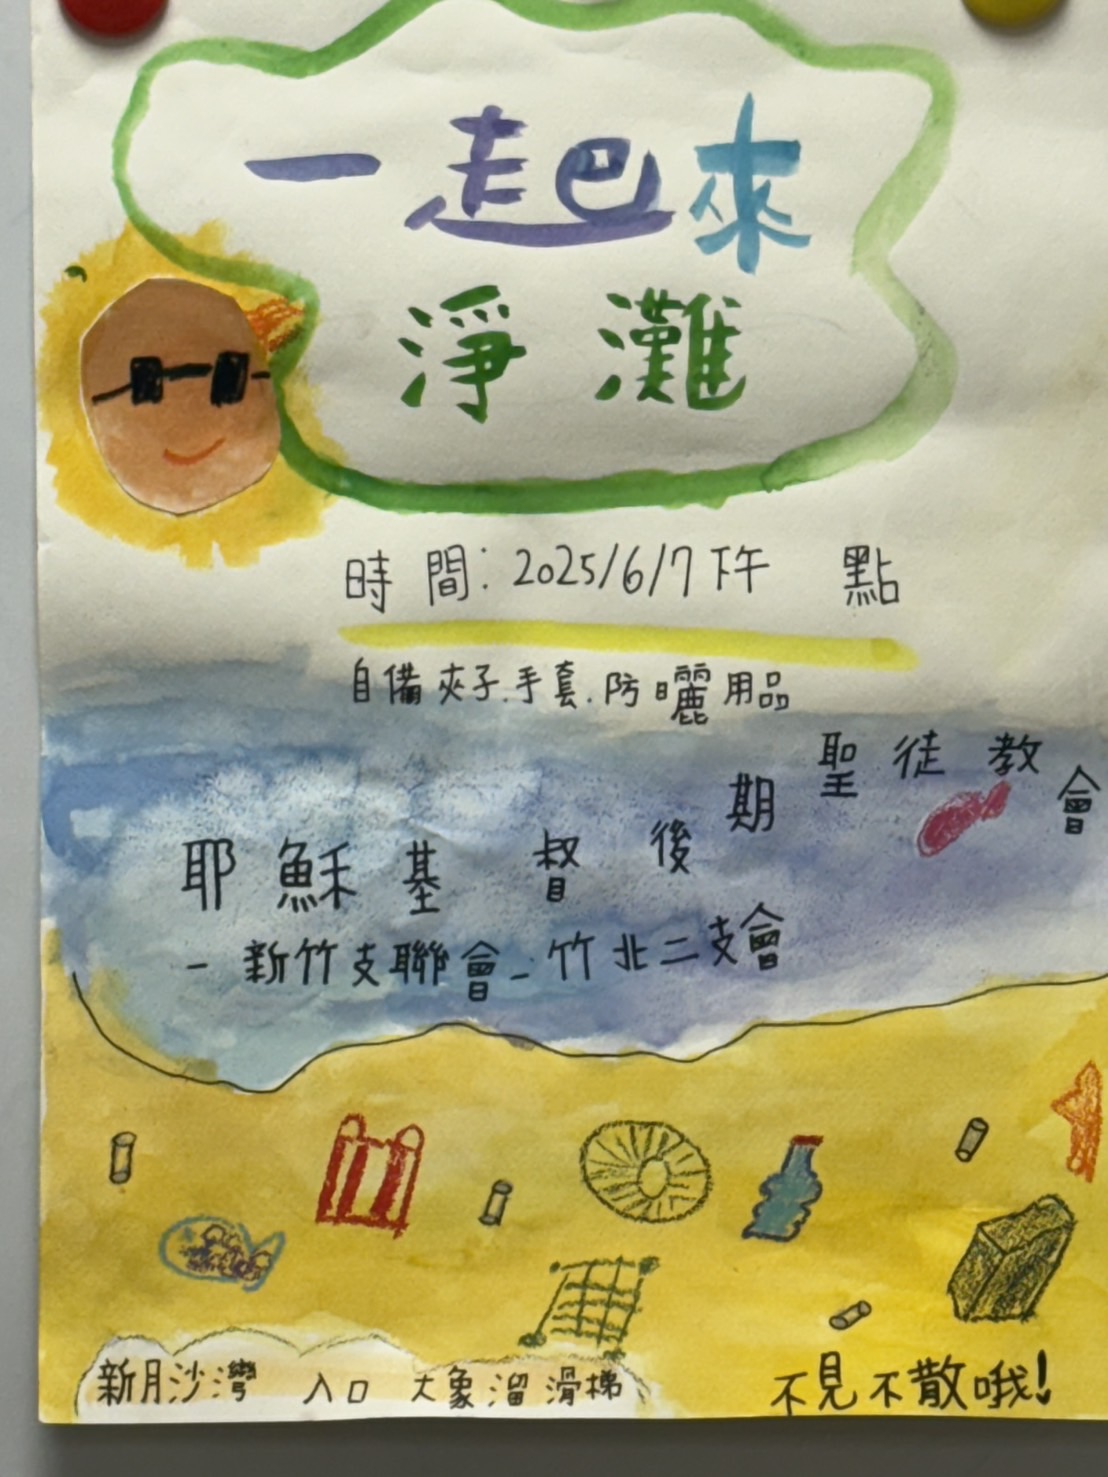 一起來
淨灘
時間:2025/6/7下午 點
自備夾子.手套.防曬用品
耶穌基督後期聖徒教會
-新竹支聯會-竹北二支會
新月沙灣 入口 大象溜滑梯
不見不散哦!